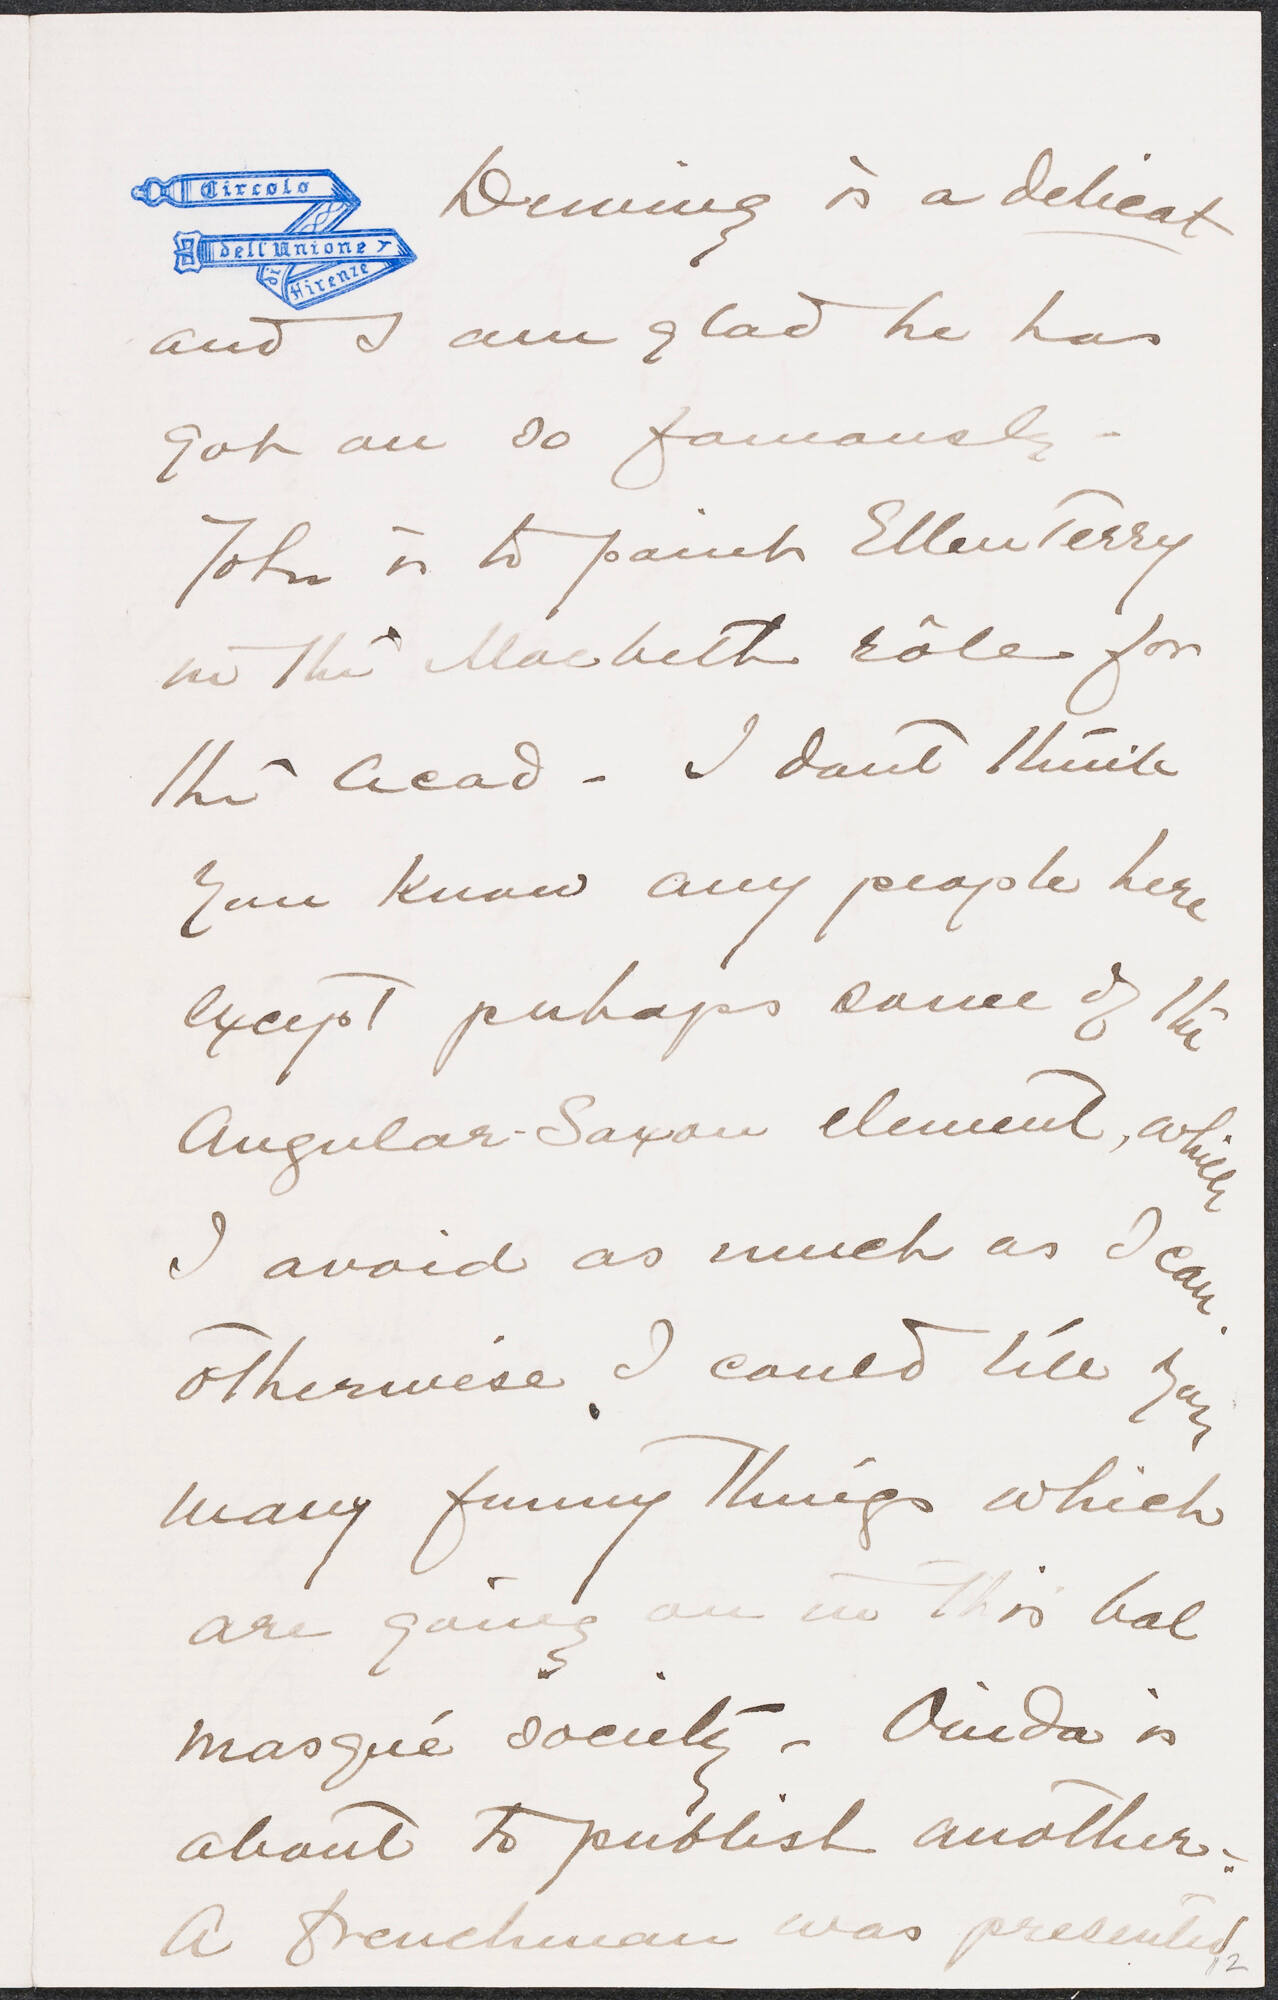 Circolo
dell'Unione
di
Firenze
Deming is a delicat
and I am glad he has
got on so famously -
John is to paint Ellen Terry
in the Macbeth rôle for
the Acad - I dont think
you know any people here
except perhaps some of the
Angular-Saxon element, which
I avoid as much as I can.
Otherwise I could tell you
many funny things which
are going on in this bal
masqué society - Ouida is
about to publish another -
A Frenchman was presented
12